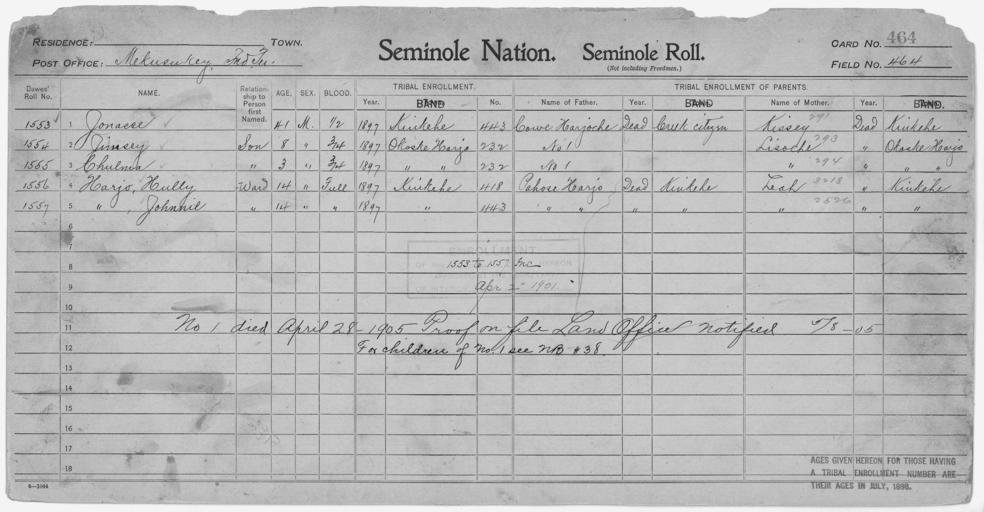 RESIDENCE: TOWN.
POST OFFICE: Mekusukey, Ind Ter.
Seminole Nation. Seminole Roll.
(Not including Freedmen.)
CARD NO. 464
FIELD NO. 464
Dawes' Roll No. NAME. Relationship to Person first Named. AGE. SEX. BLOOD. TRIBAL ENROLLMENT. TRIBAL ENROLLMENT OF PARENTS.
Year. BAND No. Name of Father. Year. BAND Name of Mother. Year. BAND
1553 1 Jonasse 41 M. 1/2 1897 Kinkehe 443 Cowe Harjoche Dead Creek citizen Kissey 291 Dead Kinkehe
1554 2 Jimsey Son 8 " 3/4 1897 Okoske Harjo 232 No 1 Lisoche 293 " Okoske Harjo
1555 3 Chulma " 3 " 3/4 1897 " " 232 No 1 " 294 " " "
1556 4 Harjo, Hully Ward 14 " Full 1897 Kinkehe 418 Pahose Harjo Dead Kinkehe Leah " Kinkehe
1557 5 " , Johnnie " 14 " " 1897 " 443 " " " " " 2526 " "
6
7
ENROLLMENT
8 1553 to 1557 Inc
9 Apr 2 1901.
10
11 No 1 died April 28-1905 Proof on file Land Office notified 5/8-05
12 For children of No. 1 see NB #38.
13
14
15
16
17
18
AGES GIVEN HEREON FOR THOSE HAVING
A TRIBAL ENROLLMENT NUMBER ARE
THEIR AGES IN JULY, 1898.